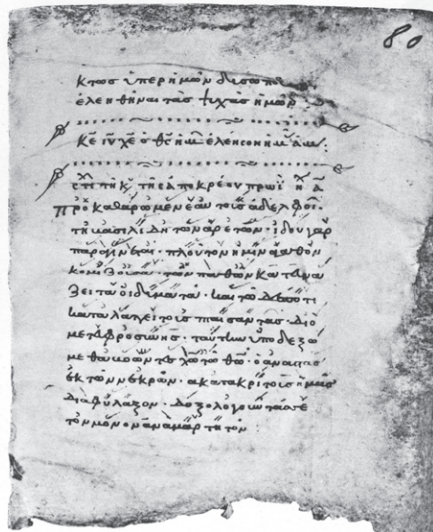 80
κτως ὑπὲρ ἡμῶν δυσωπου
ἐλεηθῆναι τὰς ψυχὰς ἡμῶν
κε ιυ χε ὁ θς ἡμ ἐλέησον ἡμ ἀμ
τῆς ἀποκρέου πρωῒ
προκαθάρωμεν ἑαυτοὺς ἀδελφοὶ·
τῇ βασιλίδι τῶν ἀρετῶν· ἰδοὺ γὰρ
πλοῦτον ἡμῖν ἀγαθῶν
κομίζουσα· τῶν παθῶν κατευνά
ζει τὰ οἰδίματα· καὶ τῶ δεσπότι
τοῖς πταίσαντας· διὸ
μετ εὐφροσύνης· ταύτην ὑποδεξώ
μεθα βοῶντες χω τῶ θω· ὁ ἀναστὰς
ἐκ τῶν νεκρῶν· ἀκατακρίτοις ἡμᾶς
διαφύλαξον· δοξολογοῦντάς σε
τὸν μόνον ἀναμάρτητον